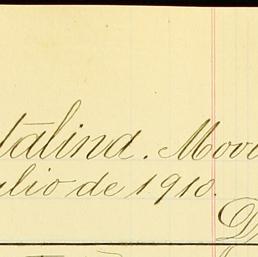 talina. Movi
ulio de 1910.